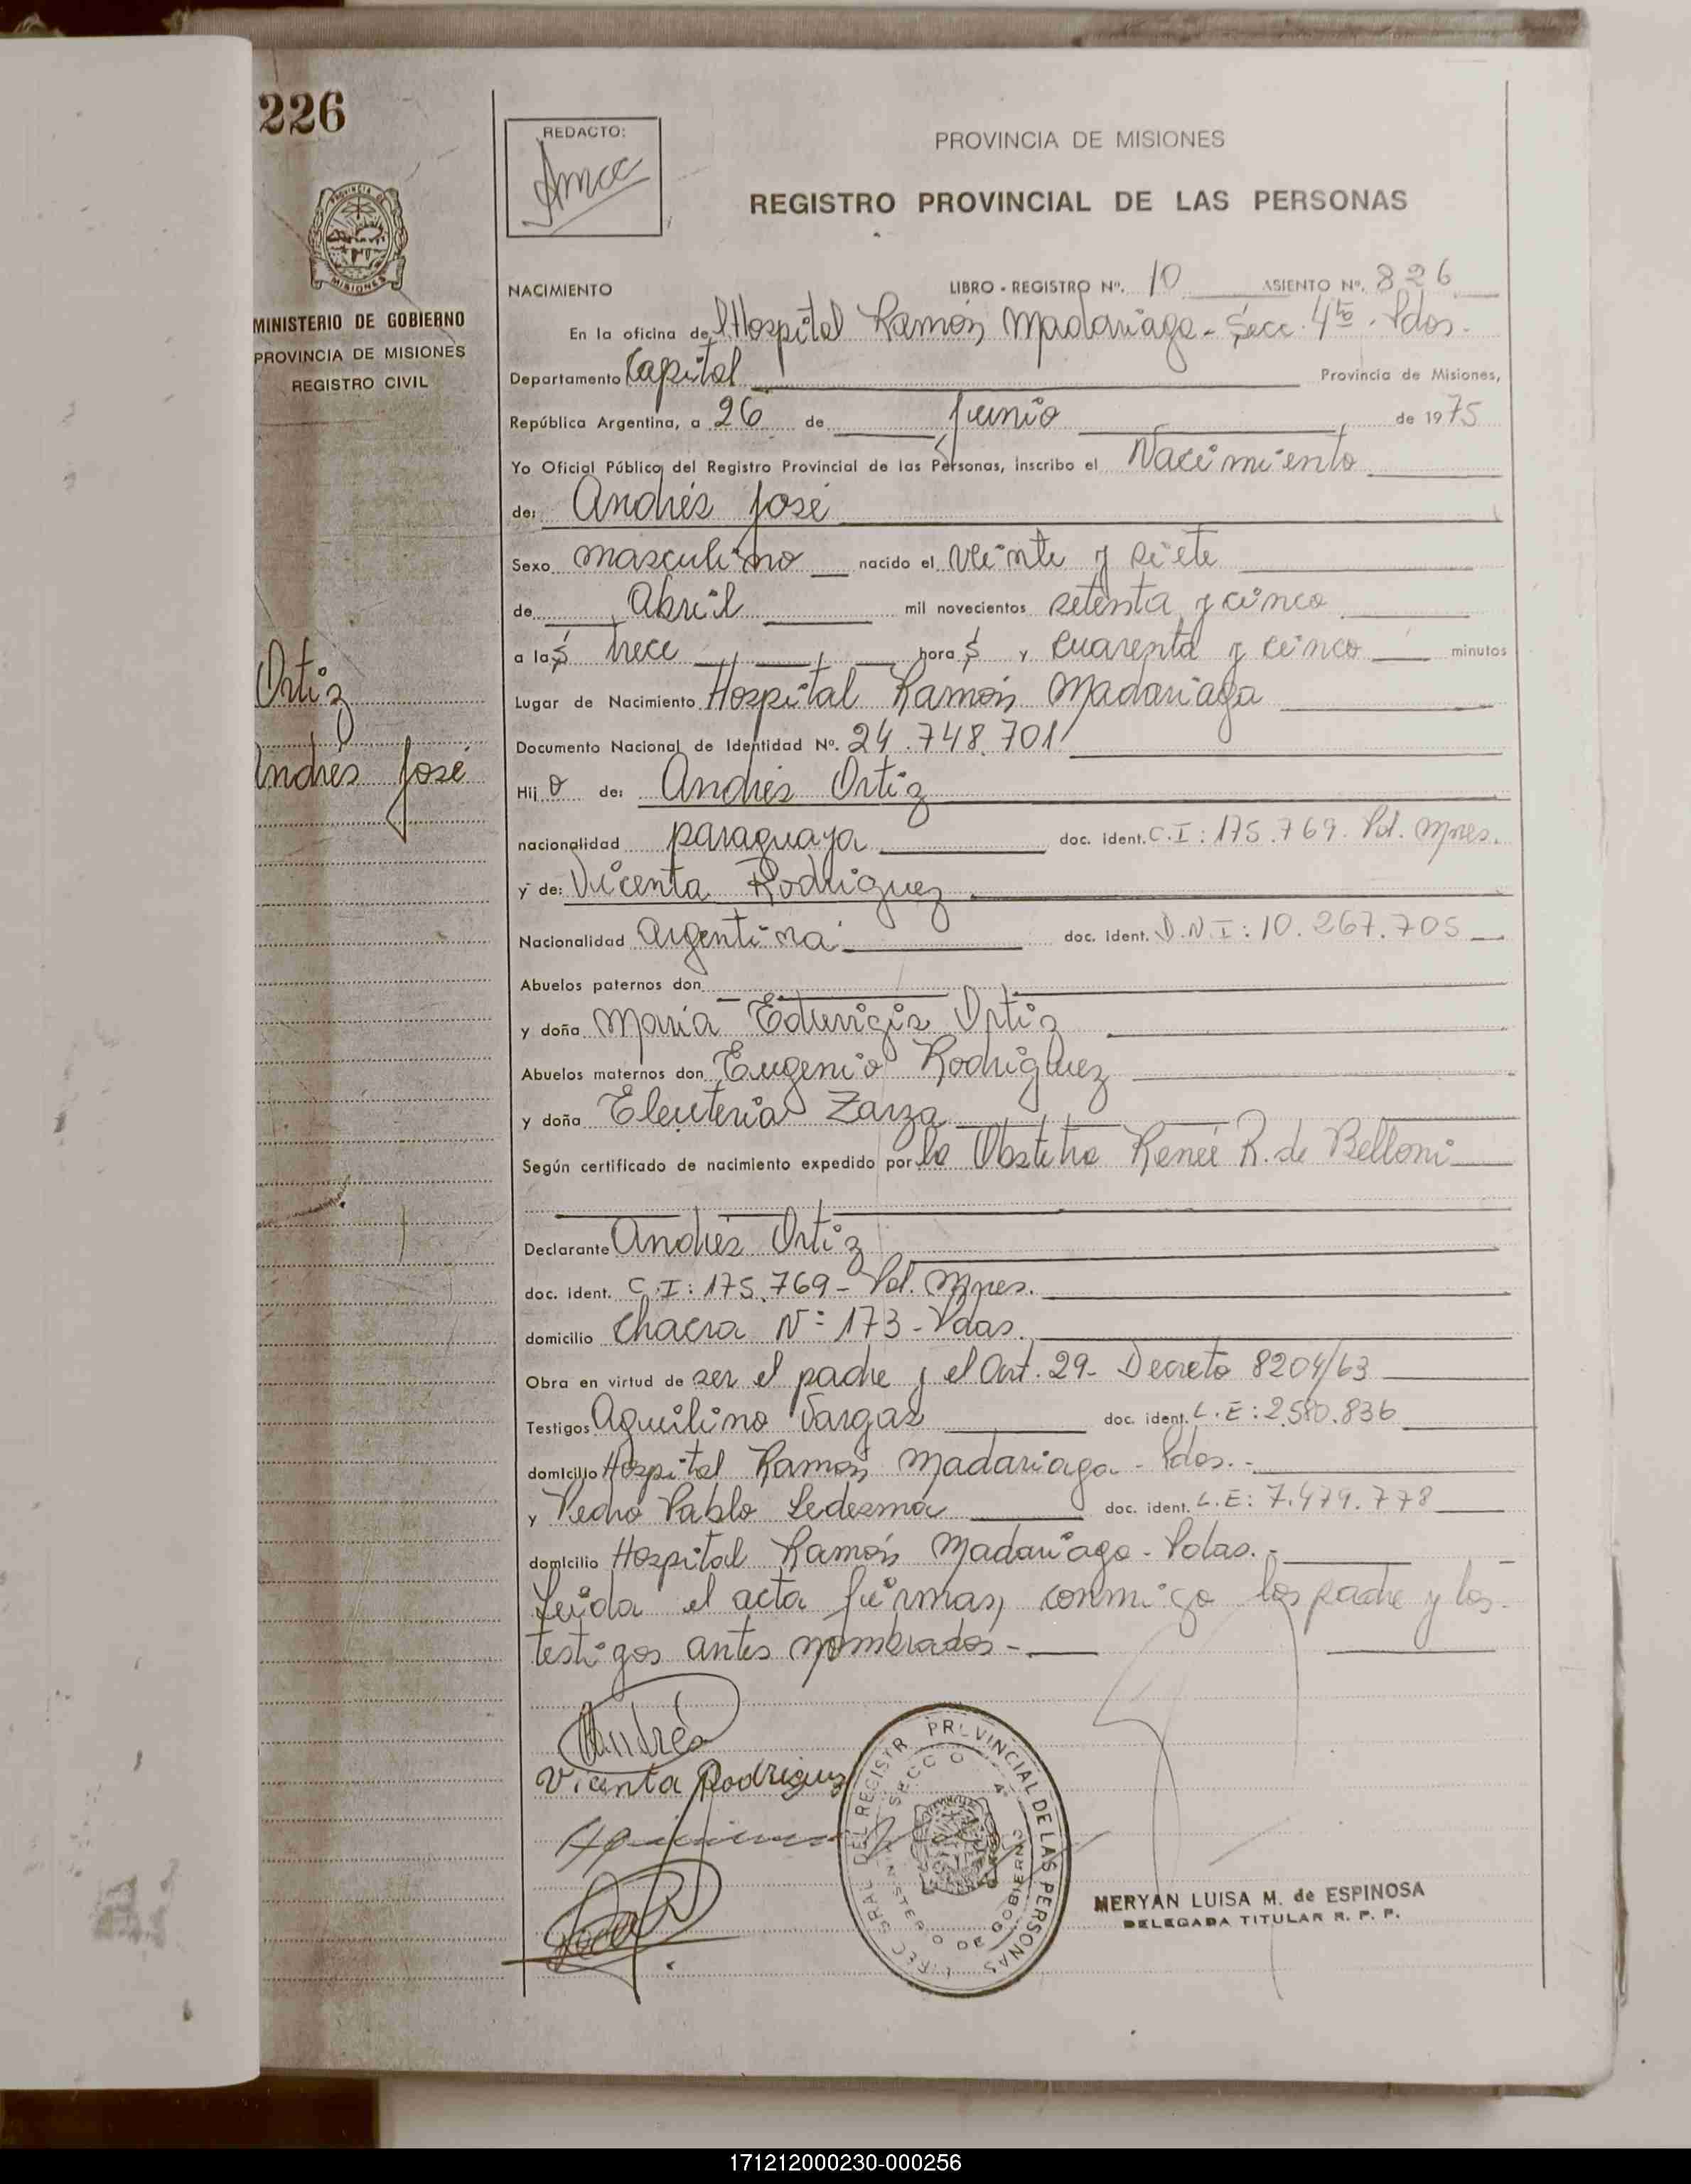 226
REDACTO:
PROVINCIA DE MISIONES
REGISTRO PROVINCIAL DE LAS PERSONAS
MINISTERIO DE GOBIERNO
PROVINCIA DE MISIONES
REGISTRO CIVIL
NACIMIENTO LIBRO - REGISTRO Nº. 10 ASIENTO Nº. 826
En la oficina del Hospital Ramón Madariaga - Secc. 4ta. Pdas.
Departamento Capital Provincia de Misiones,
República Argentina, a 26 de junio de 1975
Yo Oficial Público del Registro Provincial de las Personas, inscribo el Nacimiento
de: Andrés José
Sexo masculino nacido el veinte y siete
de Abril mil novecientos setenta y cinco
a las trece horas y cuarenta y cinco minutos
Ortiz
Andrés José
Lugar de Nacimiento Hospital Ramón Madariaga
Documento Nacional de Identidad Nº. 24.748.701
Hijo de: Andrés Ortiz
nacionalidad paraguaya doc. ident. C.I: 175.769. Pol. Mnes.
y de: Vicenta Rodriguez
Nacionalidad Argentina doc. ident. D.N.I: 10.267.705
Abuelos paternos don
y doña María Eduvigis Ortiz
Abuelos maternos don Eugenio Rodriguez
y doña Eleuteria Zarza
Según certificado de nacimiento expedido por la Obstetra Reneé R. de Belloni
Declarante Andrés Ortiz
doc. ident. C.I: 175.769 - Pol. Mnes.
domicilio Chacra Nº 173 - Pdas.
Obra en virtud de ser el padre y el Art. 29 - Decreto 8204/63
Testigos Aquilino Vargas doc. ident. L.E: 2.580.836
domicilio Hospital Ramón Madariaga - Pdas. -
y Pedro Pablo Ledesma doc. ident. L.E: 7.479.778
domicilio Hospital Ramón Madariaga - Pdas. -
Leida el acta firman conmigo los padre y los
testigos antes nombrados -
Andrés
Vicenta Rodriguez
REGISTRO PROVINCIAL DE LAS PERSONAS
MERYAN LUISA M. de ESPINOSA
DELEGADA TITULAR R. P. P.
171212000230-000256